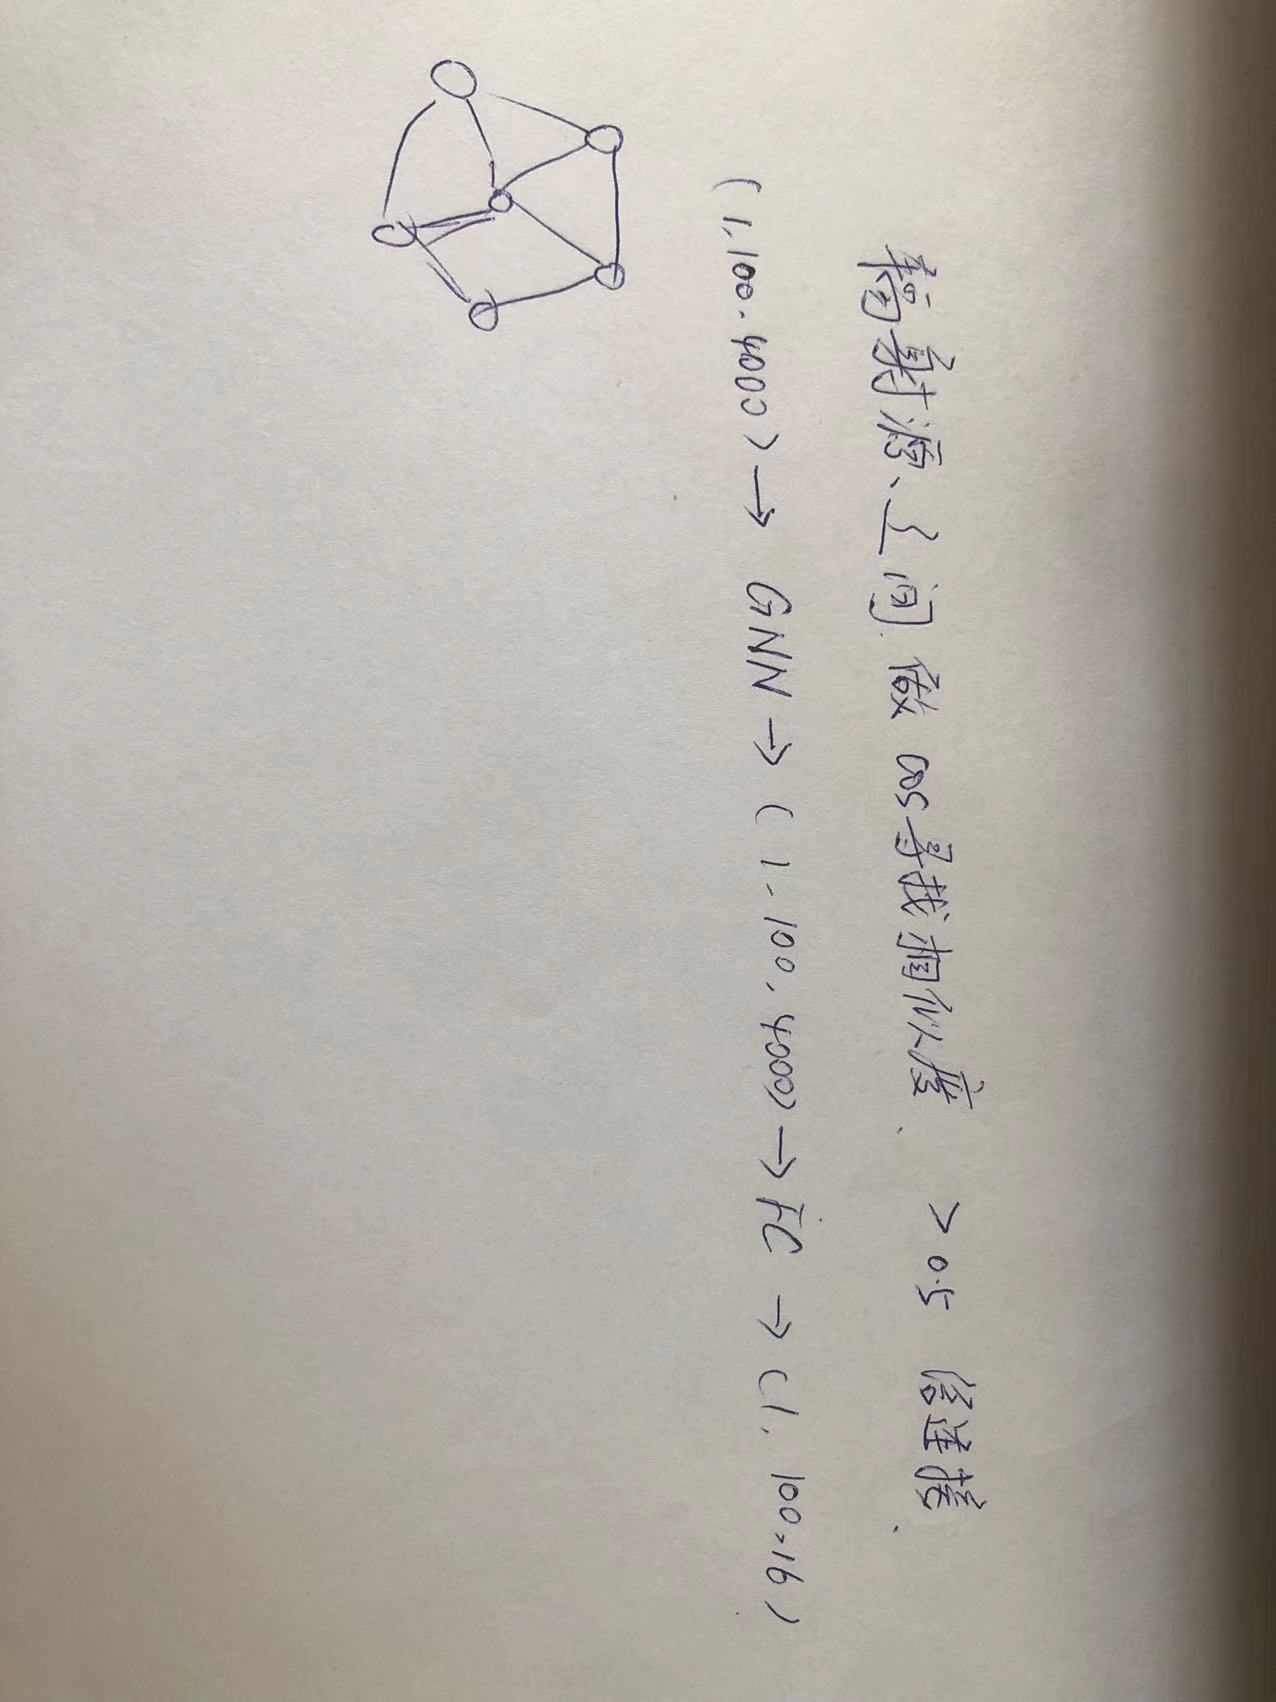 辐射源之间 做 cos寻找相似度. >0.5 给连接.
(1,100,4000) → GNN → (1,100,4000) → FC → (1,100,16)